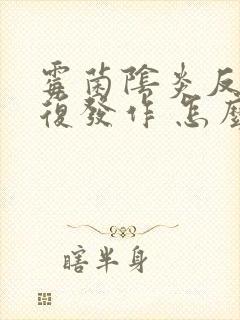 霉菌陰炎反
復發作 怎麼
瞎半身